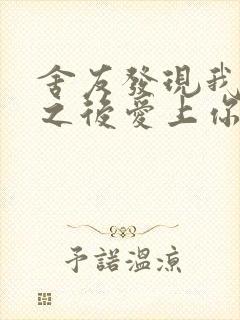 舍友發現我
之後愛上你
予諾溫涼